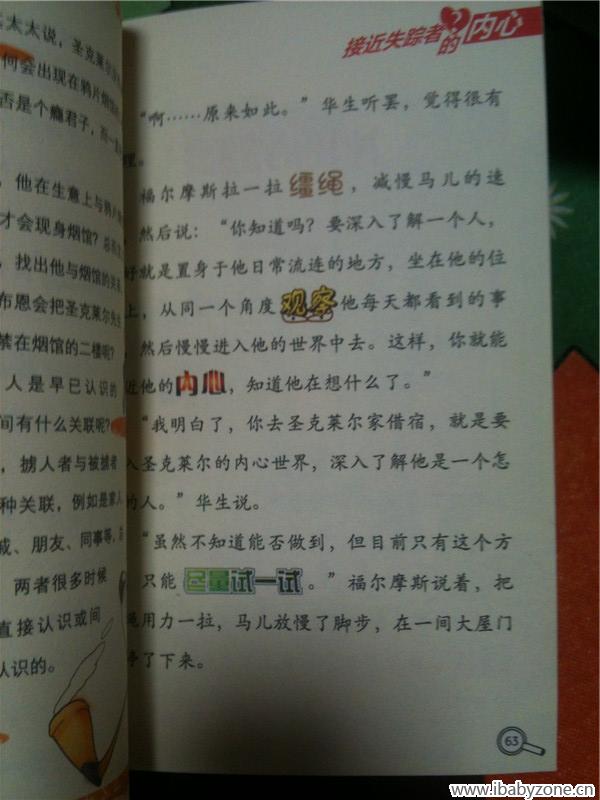 太太说，圣克莱尔
何会出现在鸦片烟馆
否是个瘾君子，而一
，他在生意上与鸦片
才会现身烟馆？总
，找出他与烟馆的关
布恩会把圣克莱尔先
禁在烟馆的二楼呢？
人是早已认识的
间有什么关联呢？
，掳人者与被掳者
种关联，例如是家人
戚、朋友、同事等，
两者很多时候
直接认识或间
认识的。
接近失踪者的内心
“啊……原来如此。”华生听罢，觉得很有
理。
福尔摩斯拉一拉缰绳，减慢马儿的速
然后说：“你知道吗？要深入了解一个人，
好就是置身于他日常流连的地方，坐在他的位
上，从同一个角度观察他每天都看到的事
，然后慢慢进入他的世界中去。这样，你就能
近他的内心，知道他在想什么了。”
“我明白了，你去圣克莱尔家借宿，就是要
入圣克莱尔的内心世界，深入了解他是一个怎
的人。”华生说。
“虽然不知道能否做到，但目前只有这个方
只能尽量试一试。”福尔摩斯说着，把
绳用力一拉，马儿放慢了脚步，在一间大屋门
停了下来。
63
www.ibabyzone.cn